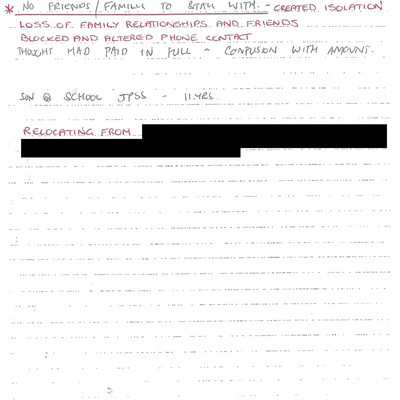 * NO FRIENDS / FAMILY TO STAY WITH. - CREATED ISOLATION
LOSS OF FAMILY RELATIONSHIPS AND FRIENDS
BLOCKED AND ALTERED PHONE CONTACT
THOUGHT HAD PAID IN FULL - CONFUSION WITH AMOUNT.
SON @ SCHOOL JPSS - 11YRS.
RELOCATING FROM